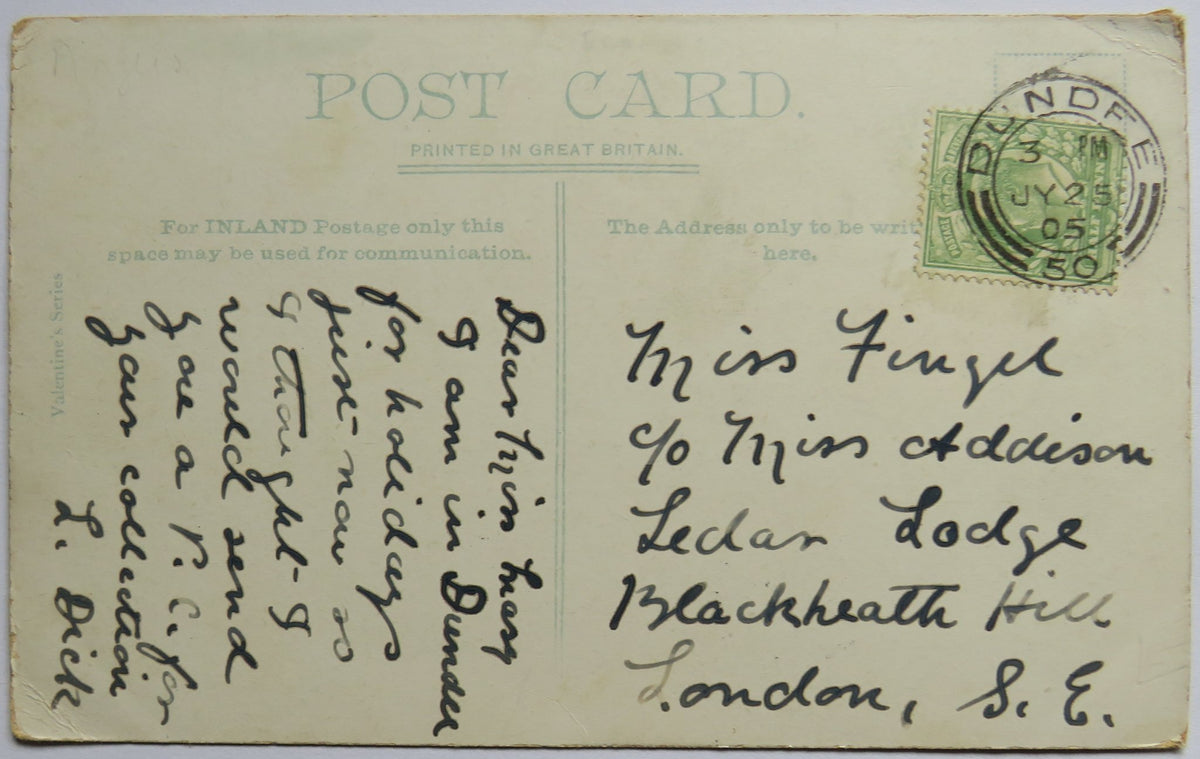 POST CARD.
PRINTED IN GREAT BRITAIN.
For INLAND Postage only this
space may be used for communication.
The Address only to be writ
here.
Valentine's Series
DUNDEE
3 PM
JY 25
05
50
Dear Miss Mary
I am in Dundee
for holidays
just now so
I thought I
would send
you a P.C. for
your collection
L. Dick
Miss Fingel
c/o Miss Addison
Ledar Lodge
Blackheath Hill
London, S. E.